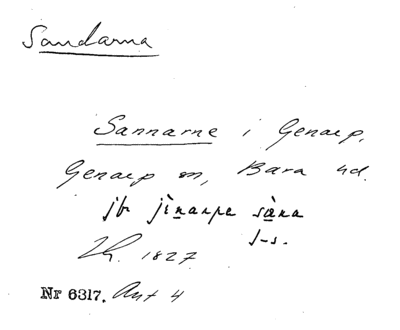 Sandarna
Sannarne i Genarp,
Genarp sn, Bara hd.
jfr jènarpa sàna
J-s.
1827
Nr 6317. Ant 4